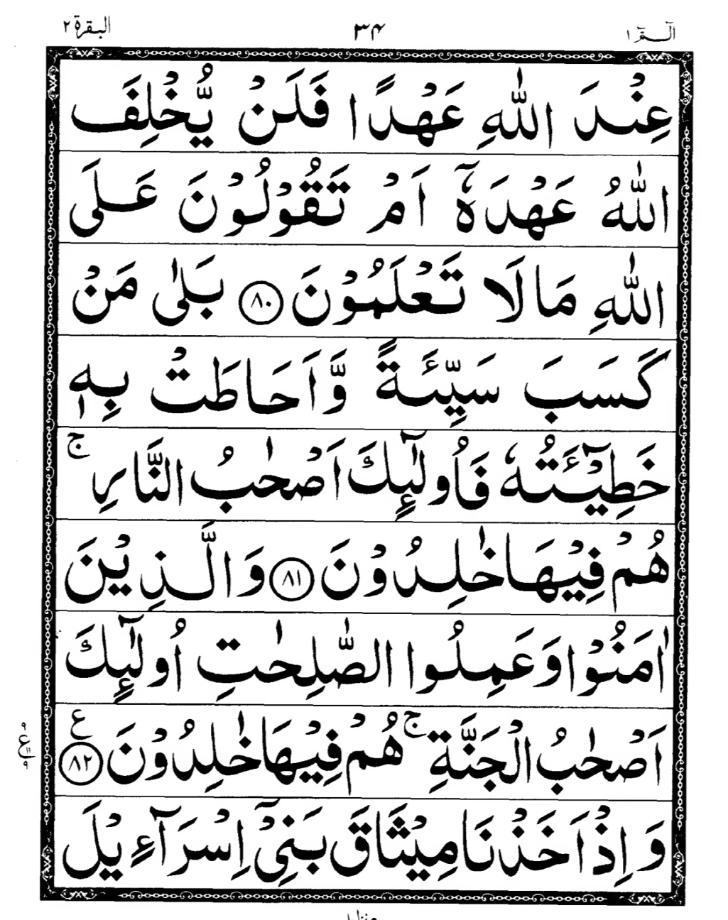 الٓـمّٓ ١ ٣٤ البقرة ٢
عِنْدَ اللّٰهِ عَهْدًا فَلَنْ يُّخْلِفَ
اللّٰهُ عَهْدَهٗٓ اَمْ تَقُوْلُوْنَ عَلَى
اللّٰهِ مَالَا تَعْلَمُوْنَ ﴿٨٠﴾ بَلٰى مَنْ
كَسَبَ سَيِّئَةً وَّاَحَاطَتْ بِهٖ
خَطِيْٓئَتُهٗ فَاُولٰٓئِكَ اَصْحٰبُ النَّارِ ۚ
هُمْ فِيْهَا خٰلِدُوْنَ ﴿٨١﴾ وَالَّذِيْنَ
اٰمَنُوْا وَعَمِلُوا الصّٰلِحٰتِ اُولٰٓئِكَ
اَصْحٰبُ الْجَنَّةِ ۚ هُمْ فِيْهَا خٰلِدُوْنَ ﴿٨٢﴾ ع
٩ ع ١١ ٩
وَاِذْ اَخَذْنَا مِيْثَاقَ بَنِيْٓ اِسْرَآءِيْلَ